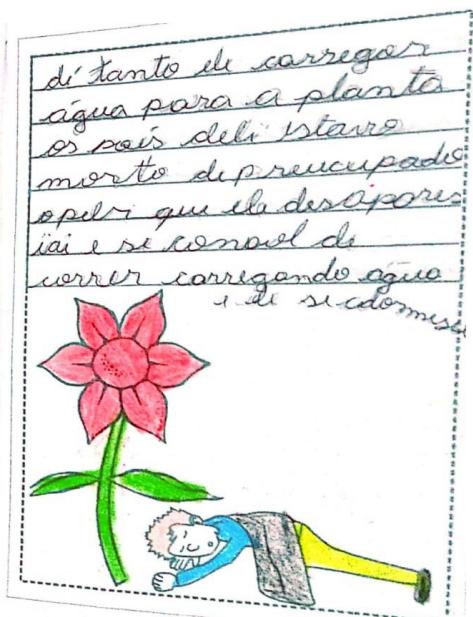 di tanto ele carregar
água para a planta
os pais deli istavo
morto dipreucupado
que ele desapares
iai e se consol de
correr carregando água
e ele se adormiseu